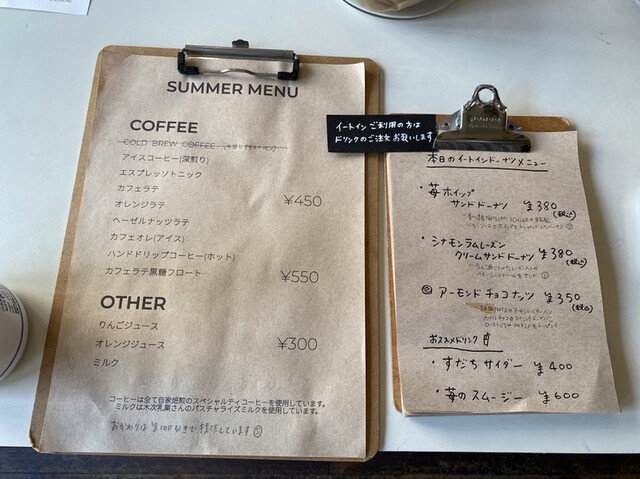 SUMMER MENU
COFFEE
COLD BREW COFFEE
アイスコーヒー(深煎り)
エスプレッソトニック
カフェラテ
オレンジラテ ¥450
ヘーゼルナッツラテ
カフェオレ(アイス)
ハンドドリップコーヒー(ホット)
カフェラテ黒糖フロート ¥550
OTHER
りんごジュース
オレンジジュース ¥300
ミルク
コーヒーは全て自家焙煎のスペシャルティコーヒーを使用しています。
ミルクは木次乳業さんのパスチャライズミルクを使用しています。
おかわりは¥100引きで提供しています
イートインご利用の方は
ドリンクのご注文お願いします
本日のイートインドーナツメニュー
・苺ホイップ
サンドドーナツ ¥380
(税込)
・シナモンラムレーズン
クリームサンドドーナツ ¥380
(税込)
◎アーモンドチョコナッツ ¥350
(税込)
おススメドリンク
・すだちサイダー ¥400
・苺のスムージー ¥600